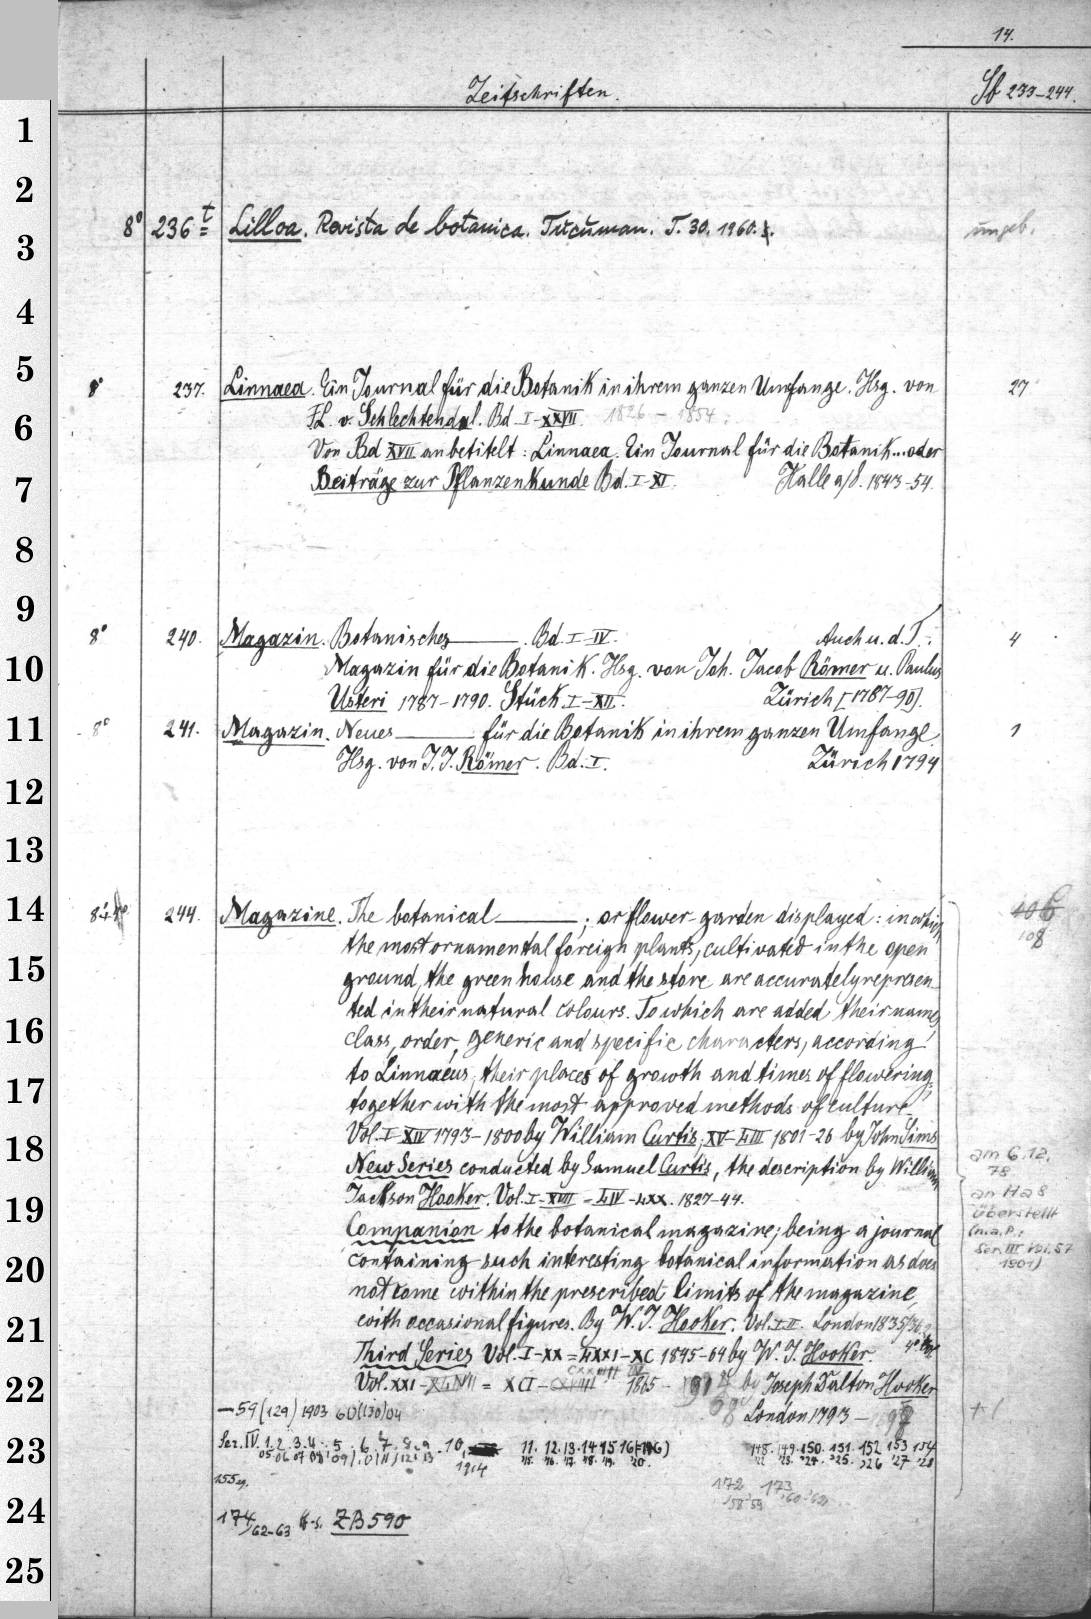 14.
Zeitschriften.
Sf 233-244.
1
2
3
4
5
6
7
8
9
10
11
12
13
14
15
16
17
18
19
20
21
22
23
24
25
8° 236 t Lilloa. Revista de botanica. Tucuman. T. 30. 1960. ungeb.
8° 237. Linnaea. Ein Journal für die Botanik in ihrem ganzen Umfange. Hsg. von 27
v. Schlechtendal. Bd I-XXVII. 1826-1854.
Von Bd XVII an betitelt: Linnaea. Ein Journal für die Botanik... oder
Beiträge zur Pflanzenkunde Bd. I-XI. Halle a/S. 1843-54.
8° 240. Magazin. Botanisches ——. Bd. I-IV. Auch u. d. T.: 4
Magazin für die Botanik. Hsg. von Joh. Jacob Römer u. Paulus
Usteri 1787-1790. Stück I-XII. Zürich [1787-90].
8° 241. Magazin. Neues —— für die Botanik in ihrem ganzen Umfange. 1
Hsg. von J. J. Römer. Bd. I. Zürich 1794
244. Magazine. The botanical ——; or flower-garden displayed: in which 108
the most ornamental foreign plants, cultivated in the open
ground, the green house and the stove are accurately represen-
ted in their natural colours. To which are added, their names,
class, order, generic and specific characters, according
to Linnaeus; their places of growth and times of flowering,
together with the most approved methods of culture
Vol. I-XIV 1793-1800 by William Curtis; XV-LIII 1801-26 by John Sims
New Series conducted by Samuel Curtis, the description by William
Jackson Hooker. Vol. I-XVIII = LIV-LXX. 1827-44.
am 6.12.
78
an Ha 8
überstellt
(n.a.P.:
Ser. III Vol. 57
1901)
Companion to the botanical magazine; being a journal
containing such interesting botanical information as does
not come within the prescribed limits of the magazine,
with occasional figures. By W. J. Hooker. Vol. I-II. London 1835/36.
Third Series Vol. I-XX = LXXI-XC 1845-64 by W. J. Hooker. 4°
Vol. XXI- = XCI- 1865- by Joseph Dalton Hooker
-59 (129) 1903 60 (130) 04 London 1793-
Ser. IV. 1. 2. 3. 4. 5. 6. 7. 8. 9. 10. 11. 12. 13. 14. 15. 16 (146) 148. 149. 150. 151. 152 153 154
05 06 07 08 09 10 11 12 13 1914 15. 16. 17. 18. 19. 20. 22 23. 24. 25. 26 27 28
155
172 173
174/62-63 ZB 590